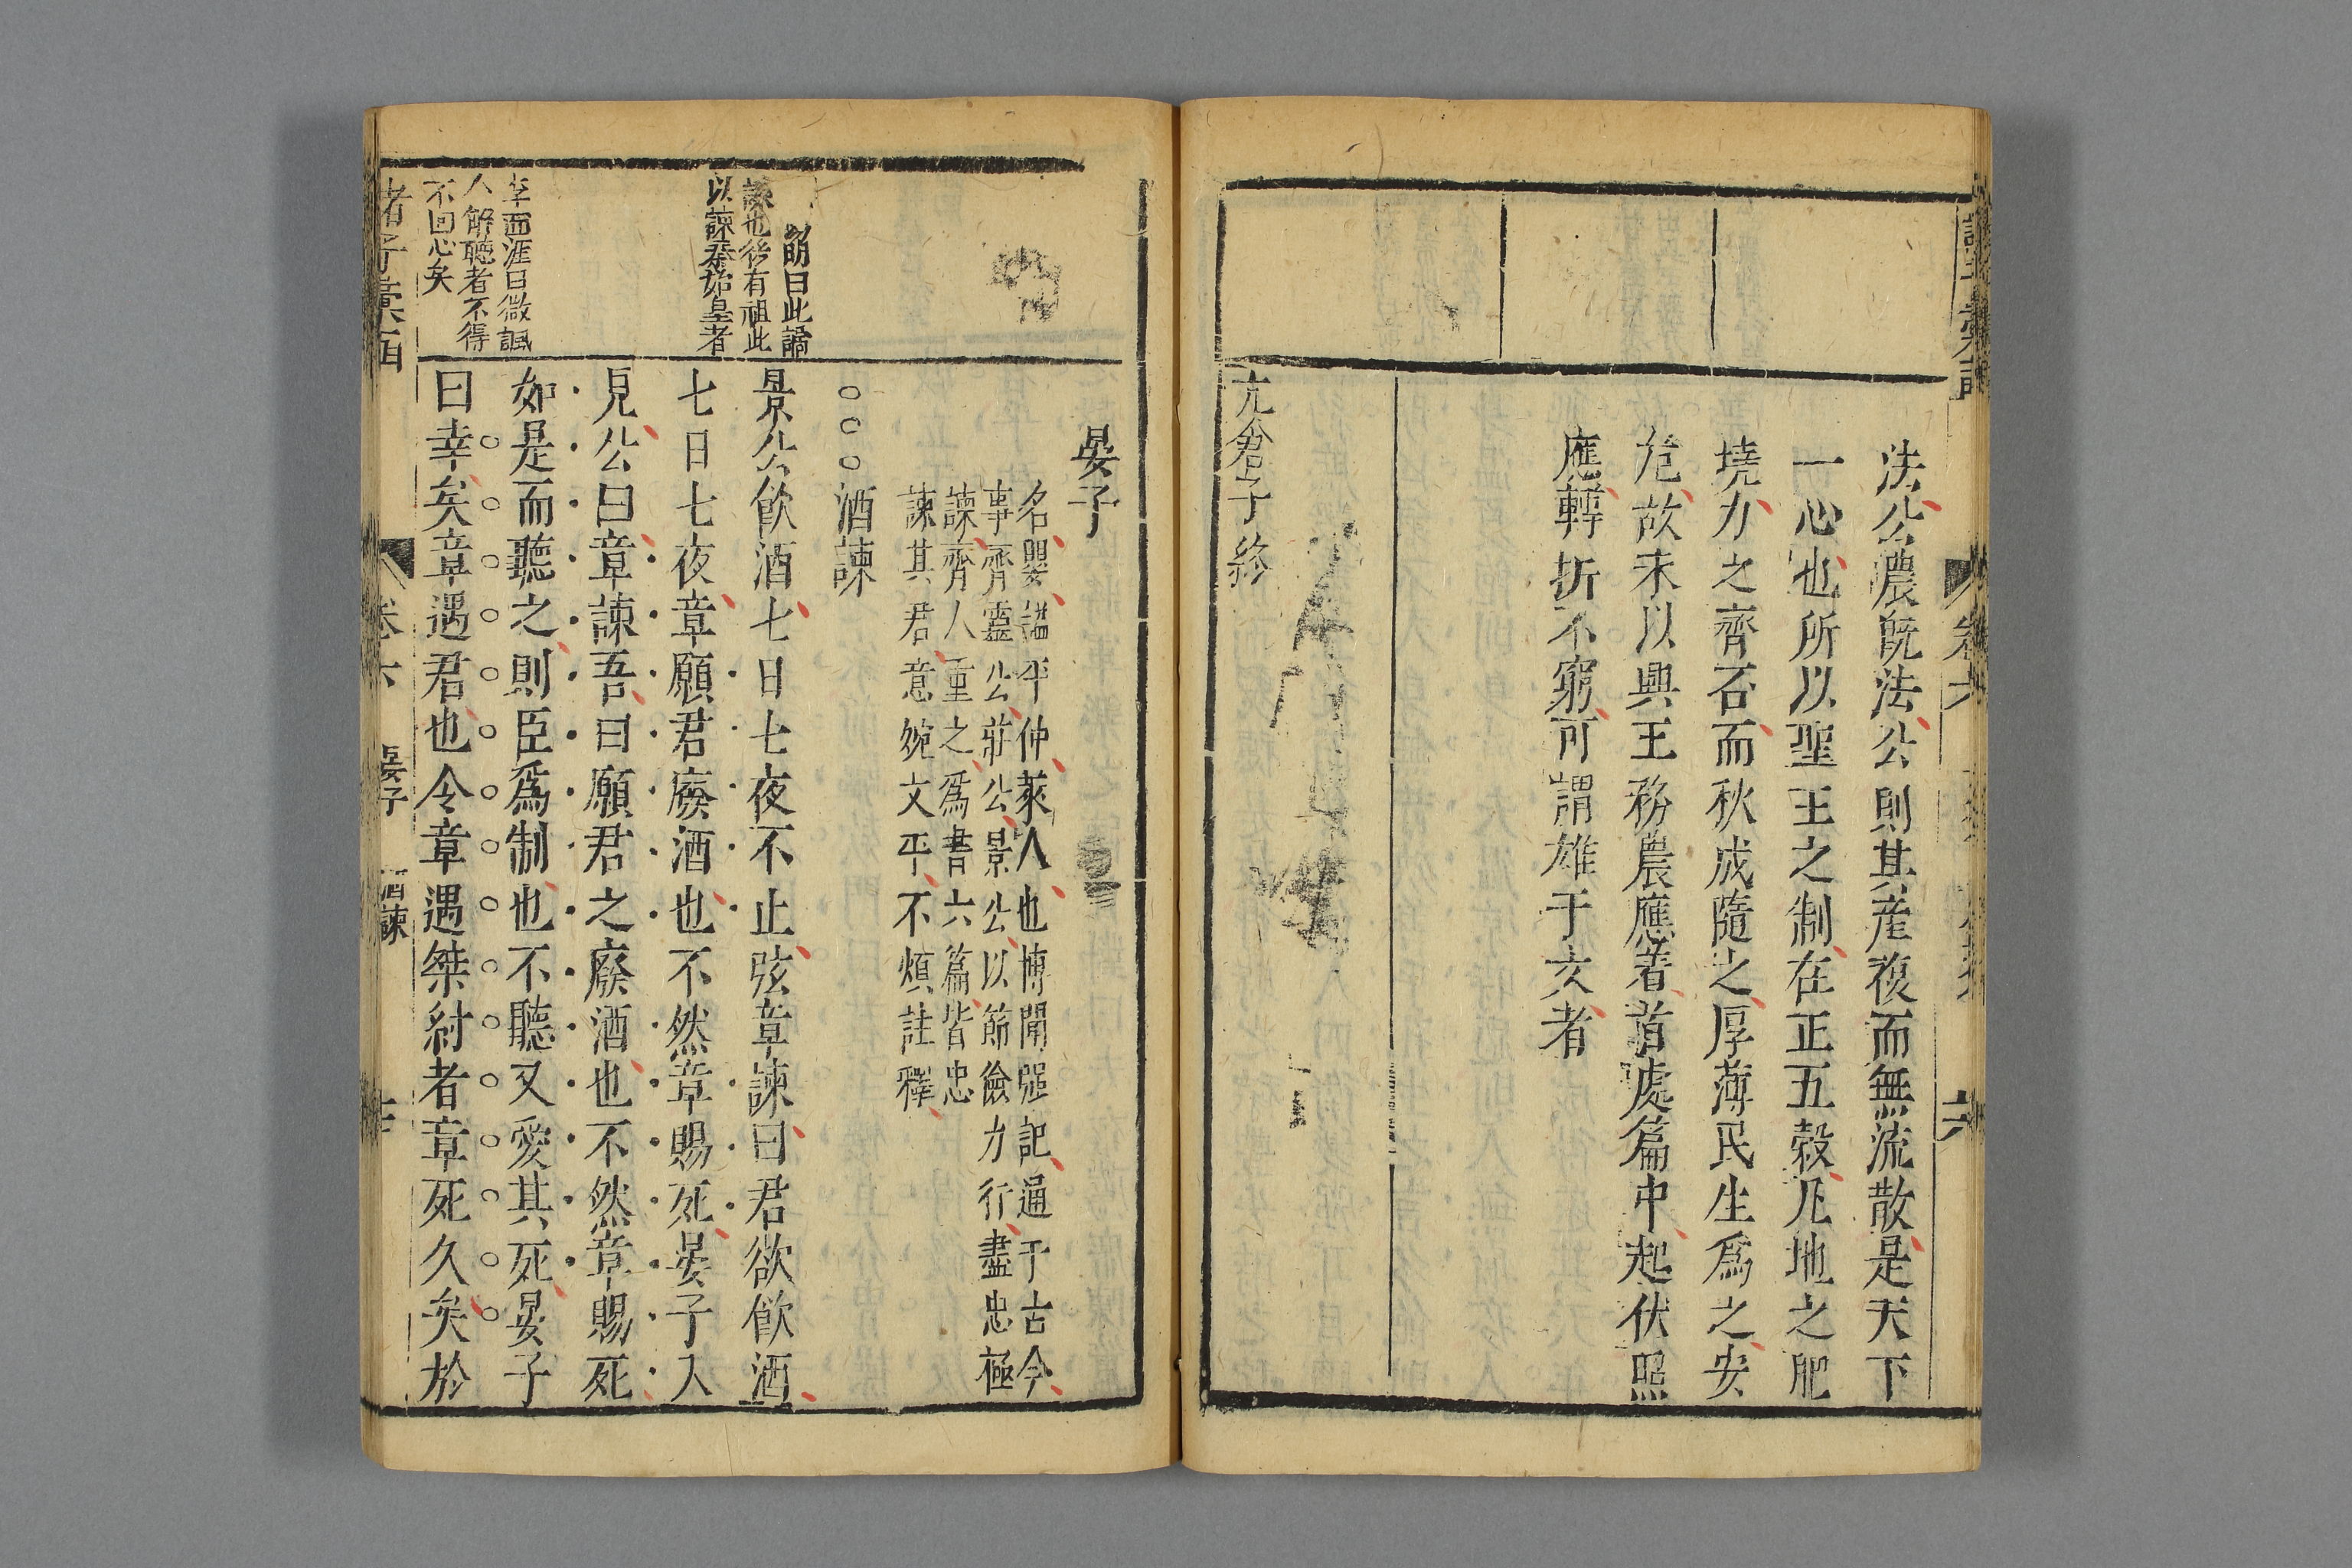 法公農既法公則其産複而無流散是天下
一心也所以聖王之制在正五穀凡地之肥
墝力之齊否而秋成隨之厚薄民生爲之安
危故未以興王務農應着首處篇中起伏照
應轉折不窮可謂雄于文者
亢倉子終
卷六
晏子
名嬰謚平仲萊人也博聞强記通于古今
事齊靈公莊公景公以節儉力行盡忠極
諫齊人重之爲書六篇皆忠
諫其君意婉文平不煩註釋
○○○酒諫
曰此譎
諫也後有祖此
以諫秦始皇者
景公飮酒七日七夜不止弦章諫曰君欲飮酒
七日七夜章願君廢酒也不然章賜死晏子入
見公曰章諫吾曰願君之廢酒也不然章賜死
如是而聽之則臣爲制也不聽又愛其死晏子
曰幸矣章遇君也令章遇桀紂者章死久矣於
李西涯曰微諷
人解聽者不得
不回心矣
諸子彙函
卷六 晏子 酒諫